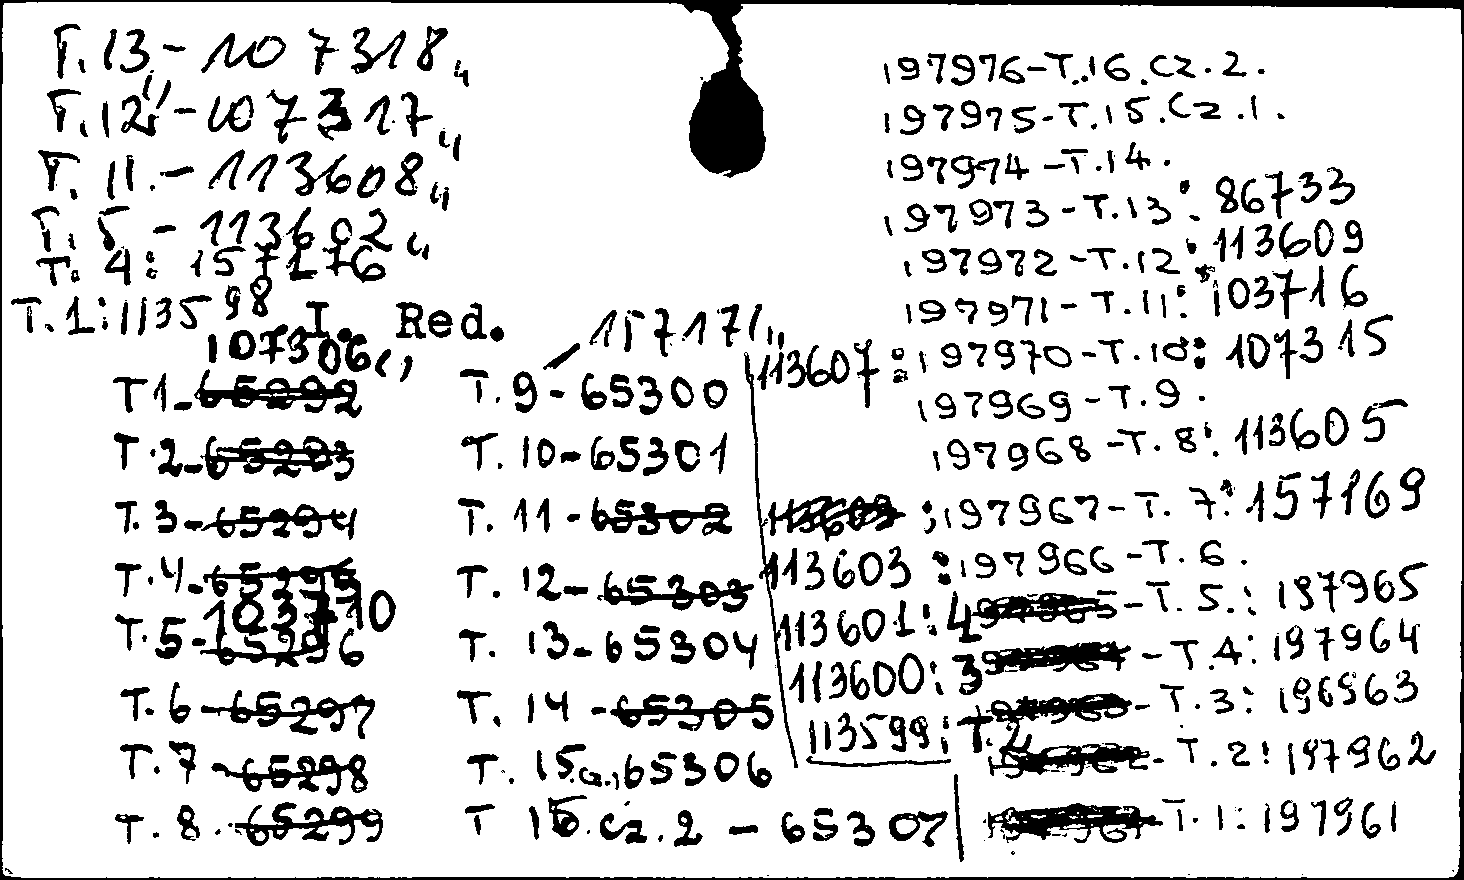 T.13-107318,,
T.12-107317,,
T.11.-113608,,
T.5-113602,,
T.4:157176
T.1:113598
I. Red.
107306,,
157171,,
T1-65292
T.2-65293
T.3-65294
T.4-65295
103710
T.5-65296
T.6-65297
T.7-65298
T.8.-65299
T.9-65300
T.10-65301
T.11-65302
T.12-65303
T.13-65304
T.14-65305
T.15.cz.1 65306
T 16.cz.2 - 65307
197976-T.16.cz.2.
197975-T.15.cz.1.
197974-T.14.
197973-T.13: 86733
197972-T.12: 113609
197971-T.11: 103716
113607: 197970-T.10: 107315
197969-T.9.
197968-T.8: 113605
113609 ; 197967-T.7: 157169
113603 : 197966-T.6.
113601: 4 -T.5.: 197965
113600: 3 -T.4: 197964
-T.3: 196963
113599: T.2
-T.2: 197962
-T.1: 197961